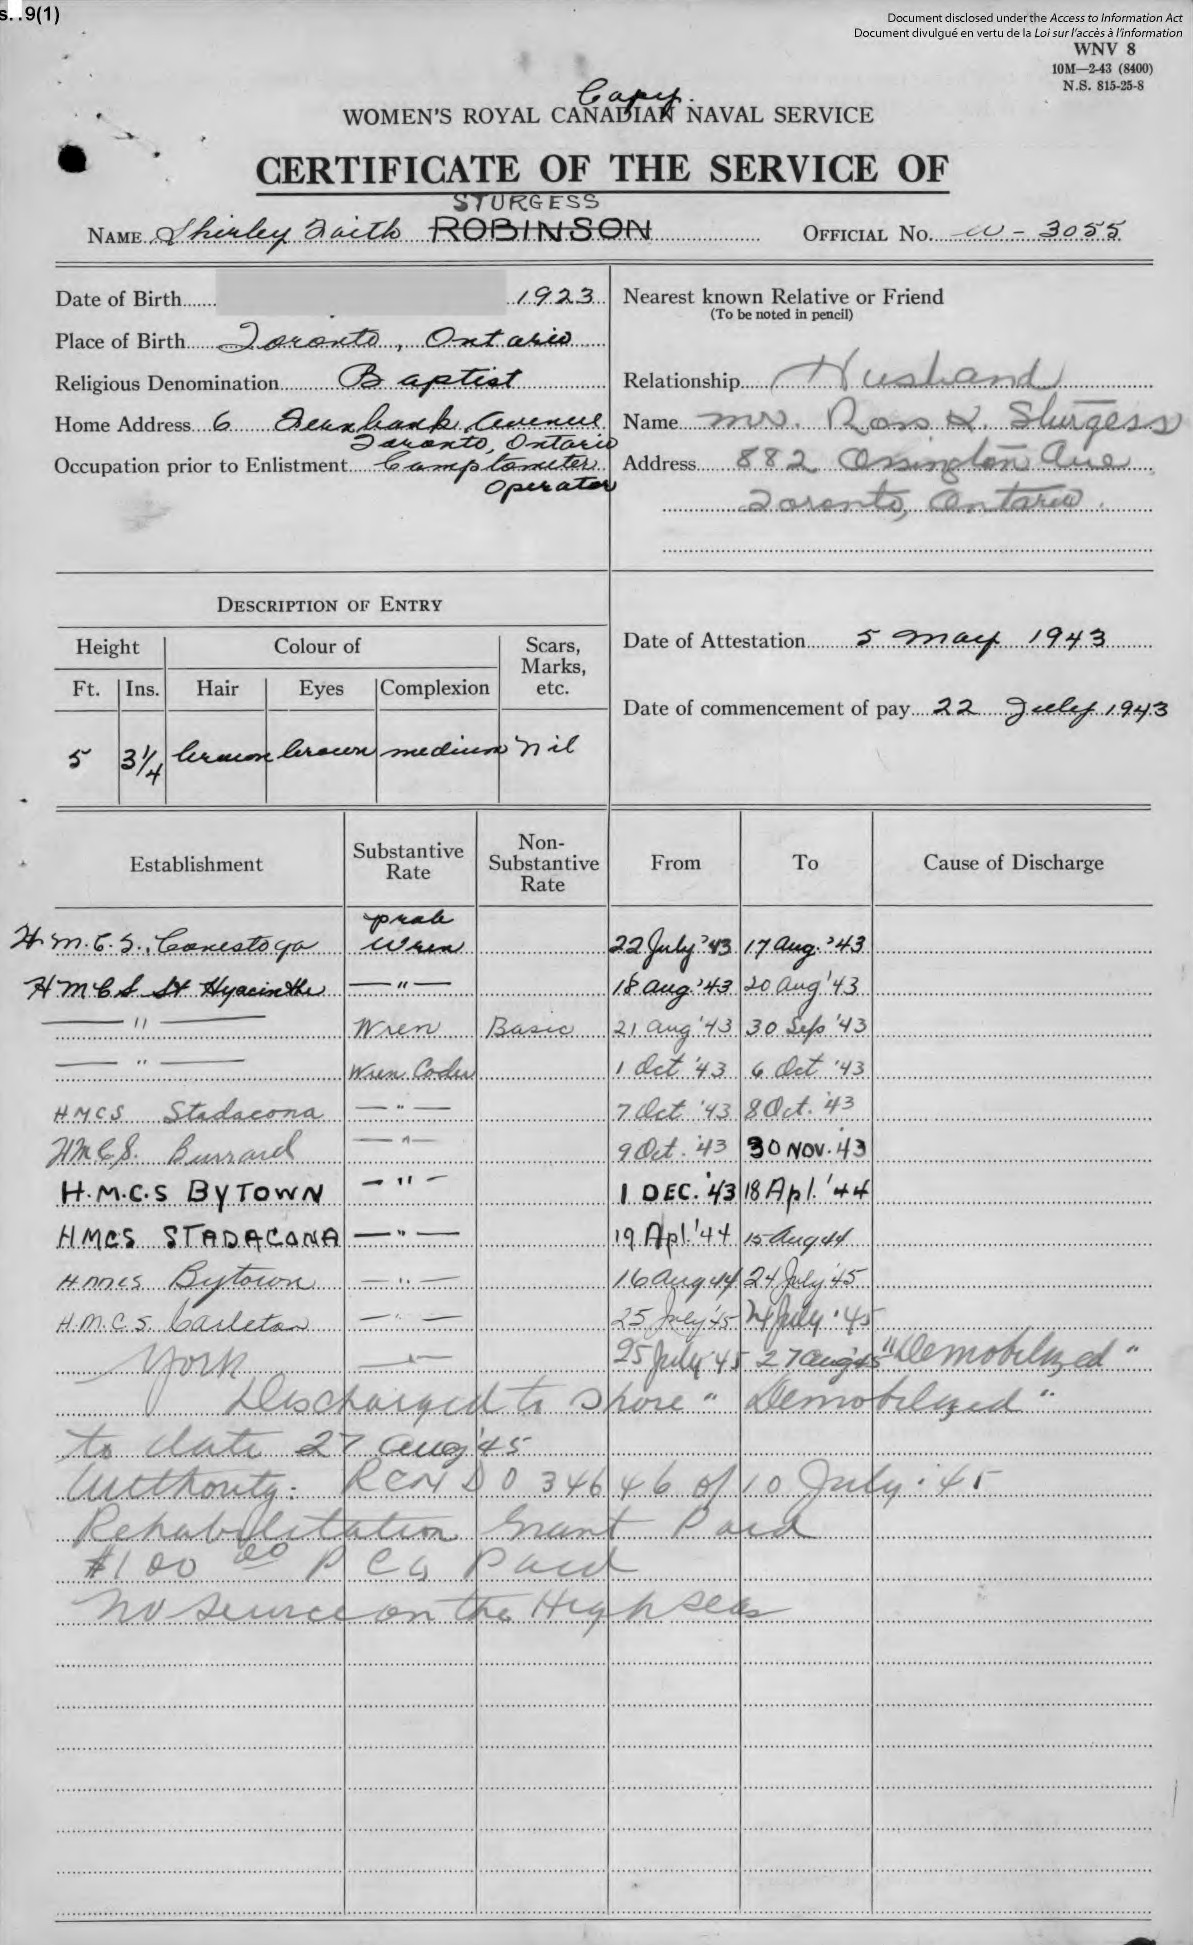 s.19(1)
Document disclosed under the Access to Information Act
Document divulgué en vertu de la Loi sur l'accès à l'information
WNV 8
10M—2-43 (8400)
N.S. 815-25-8
Copy.
WOMEN'S ROYAL CANADIAN NAVAL SERVICE
CERTIFICATE OF THE SERVICE OF
STURGESS
NAME Shirley Faith ROBINSON OFFICIAL NO. W-3055
Date of Birth 1923
Place of Birth Toronto, Ontario
Religious Denomination Baptist
Home Address 6 Avenue
Toronto, Ontario
Occupation prior to Enlistment Comptometer
Operator
Nearest known Relative or Friend
(To be noted in pencil)
Relationship Husband
Name Mr. Ross K. Sturgess
Address 882 Ossington Ave
Toronto, Ontario.
DESCRIPTION OF ENTRY
Height Colour of Scars, Marks, etc.
Ft. Ins. Hair Eyes Complexion
5 3¼ brown brown medium Nil
Date of Attestation 5 May 1943
Date of commencement of pay 22 July 1943
Establishment Substantive Rate Non-Substantive Rate From To Cause of Discharge
H.M.C.S. Conestoga prob Wren 22 July '43 17 Aug. '43
HMCS St Hyacinthe — " — 18 Aug. '43 20 Aug '43
— " — Wren Basic 21 Aug '43 30 Sep '43
— " — Wren Coder 1 Oct '43 6 Oct '43
HMCS Stadacona — " — 7 Oct '43 8 Oct. '43
HMCS. Burrard — " — 9 Oct. '43 30 NOV. '43
H.M.C.S BYTOWN — " — 1 DEC. '43 18 Apl. '44
HMCS STADACONA — " — 19 Apl. '44 15 Aug 44
HMCS Bytown — " — 16 Aug 44 24 July '45
H.M.C.S. Carleton — " — 25 July '45 24 July '45
York — " — 25 July '45 27 Aug '45 "Demobilized"
Discharged to shore "Demobilized"
to date 27 Aug '45
Authority: RCN D O 34646 of 10 July '45
Rehabilitation Grant Paid
$100 00 P C A Paid
No service on the High seas